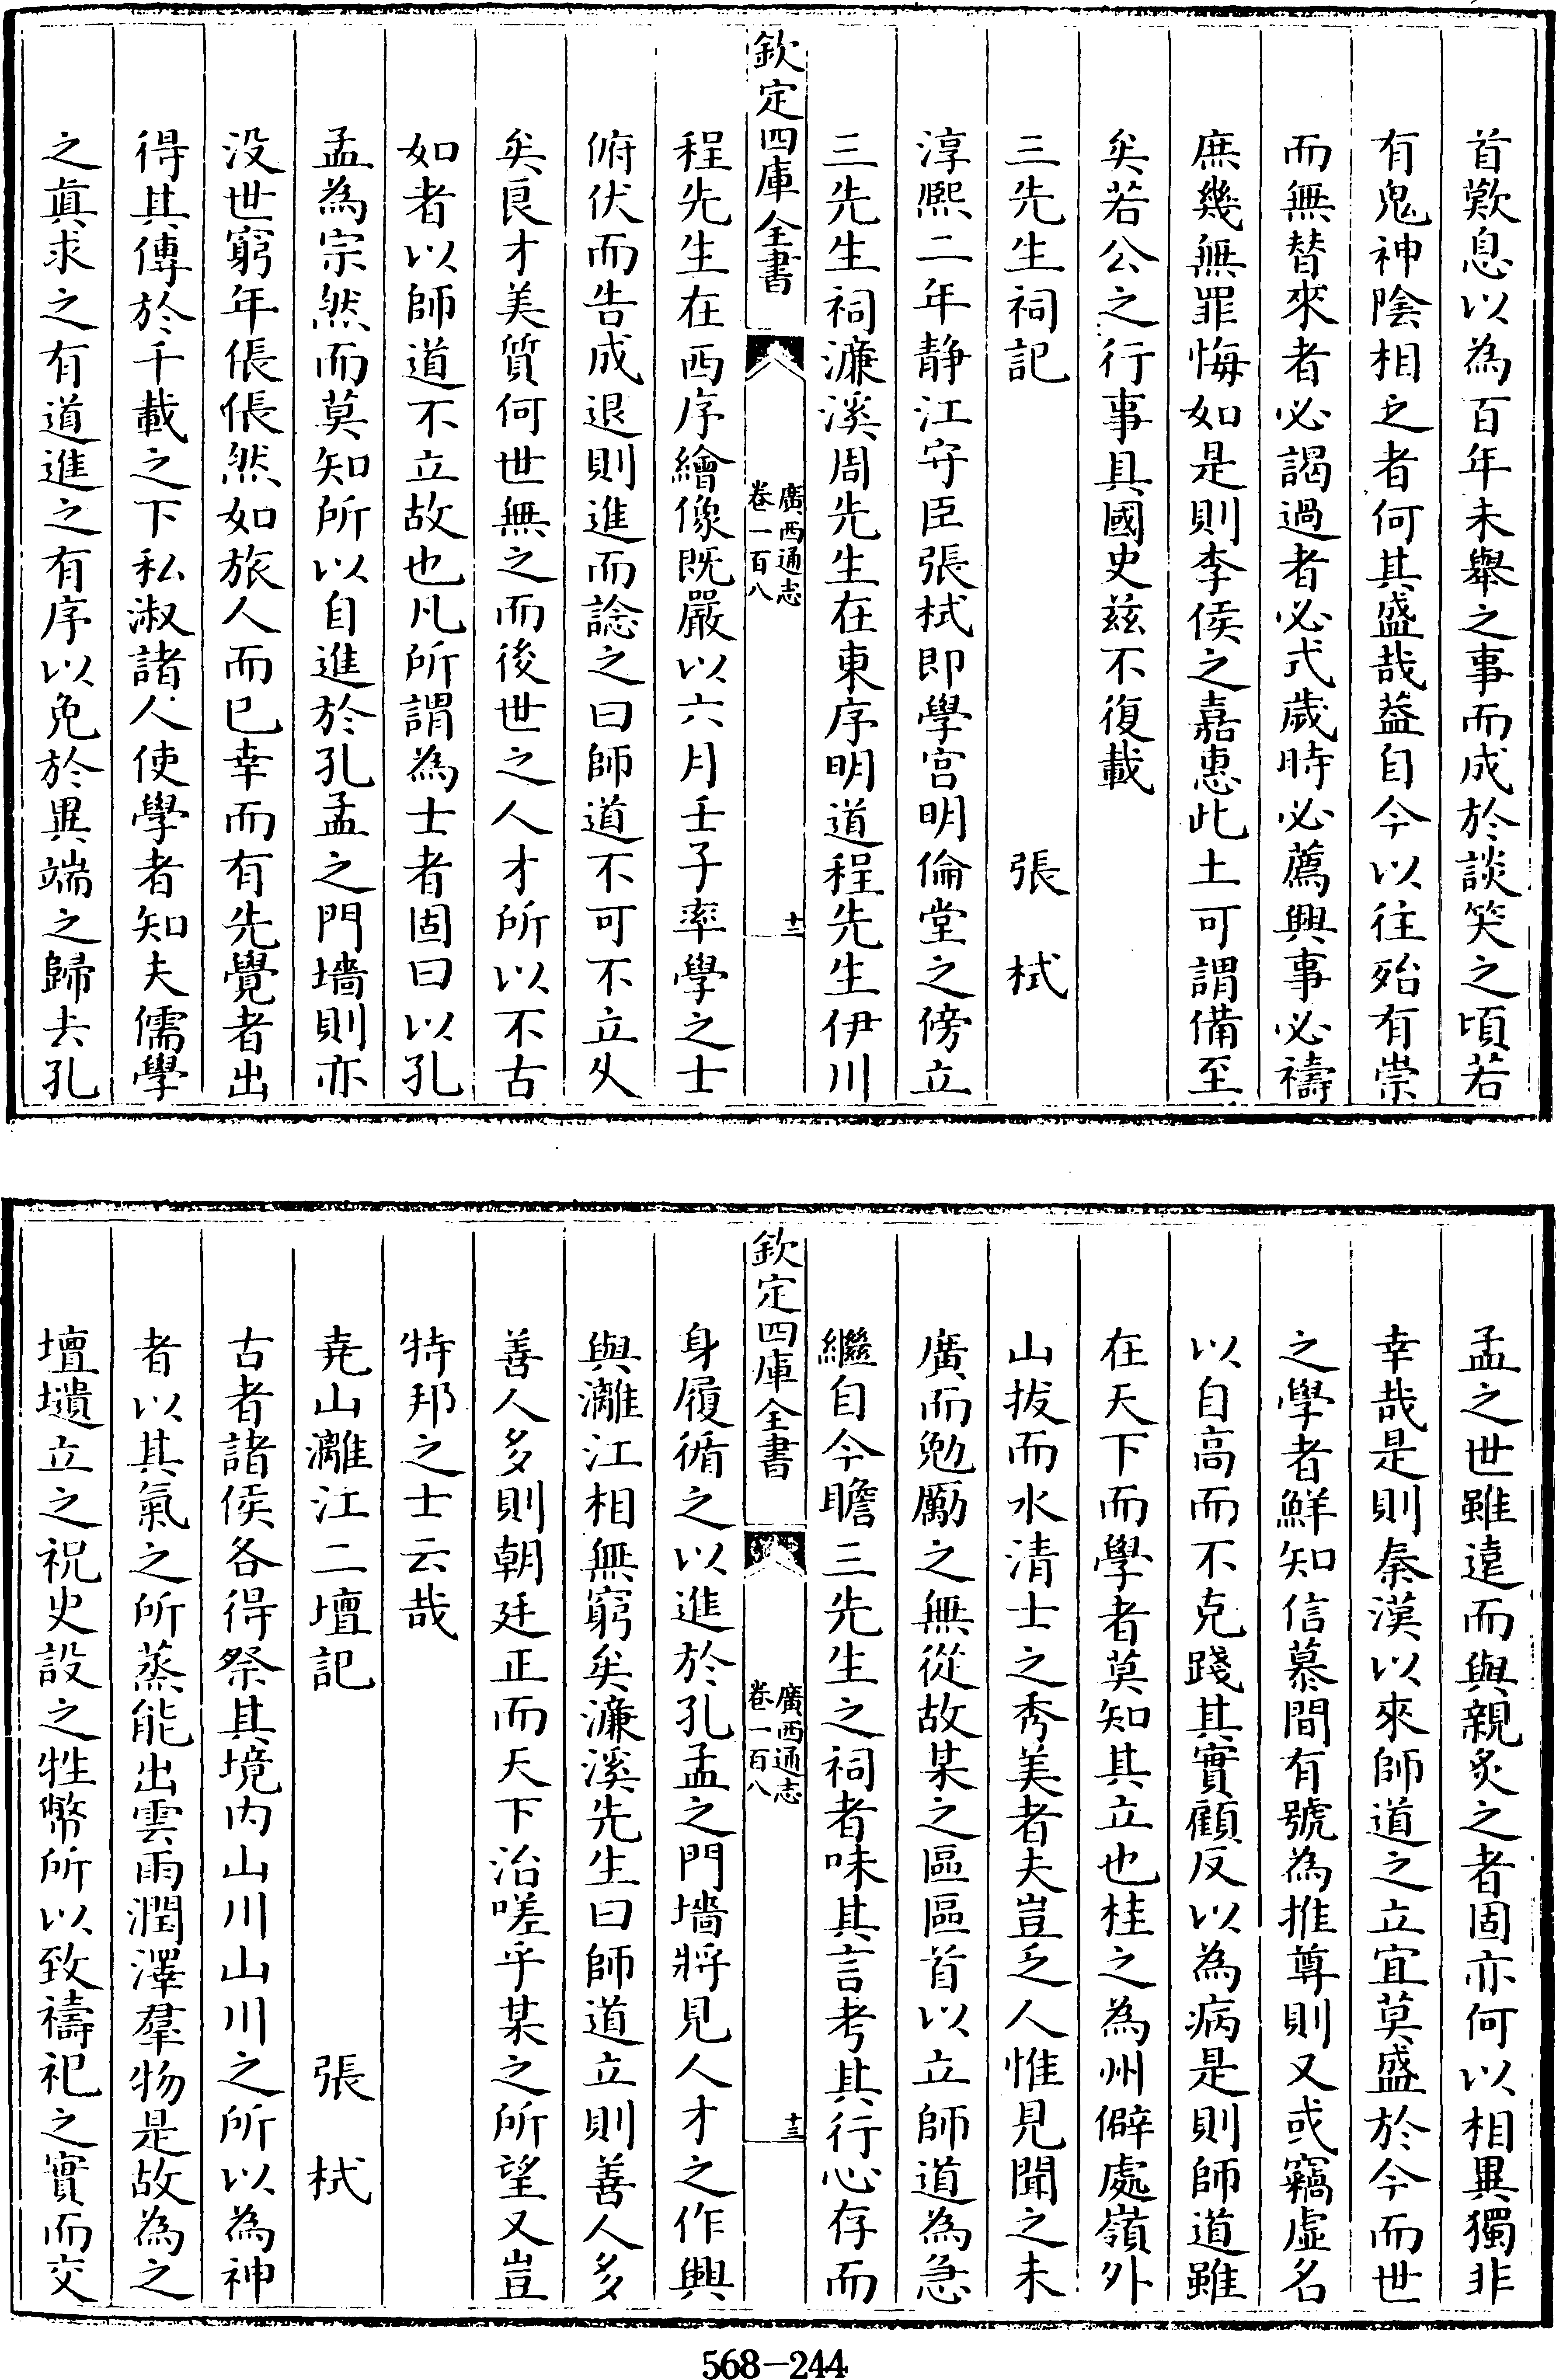 首歎息以為百年未舉之事而成於談笑之頃若
有鬼神陰相之者何其盛哉益自今以往殆有崇
而無替來者必謁過者必式歲時必薦興事必禱
庶幾無罪悔如是則李侯之嘉惠此土可謂備至
矣若公之行事具國史兹不復載
三先生祠記　張　栻
淳熈二年静江守臣張栻即學宫明倫堂之傍立
三先生祠濂溪周先生在東序明道程先生伊川
欽定四庫全書　廣西通志卷一百八　十二
程先生在西序繪像既嚴以六月壬子率學之士
俯伏而告成退則進而諗之曰師道不可不立乆
矣良才美質何世無之而後世之人才所以不古
如者以師道不立故也凡所謂為士者固曰以孔
孟為宗然而莫知所以自進於孔孟之門墻則亦
没世窮年倀倀然如旅人而已幸而有先覺者出
得其傳於千載之下私淑諸人使學者知夫儒學
之眞求之有道進之有序以免於異端之歸去孔
孟之世雖遠而與親炙之者固亦何以相異獨非
幸哉是則秦漢以來師道之立宜莫盛於今而世
之學者鮮知信慕間有號為推尊則又或竊虚名
以自高而不克踐其實顧反以為病是則師道雖
在天下而學者莫知其立也桂之為州僻處嶺外
山拔而水清士之秀美者夫豈乏人惟見聞之未
廣而勉勵之無從故某之區區首以立師道為急
繼自今瞻三先生之祠者味其言考其行心存而
欽定四庫全書　廣西通志卷一百八　十三
身履循之以進於孔孟之門墻將見人才之作興
與灕江相無窮矣濂溪先生曰師道立則善人多
善人多則朝廷正而天下治嗟乎某之所望又豈
特邦之士云哉
堯山灕江二壇記　張　栻
古者諸侯各得祭其境内山川山川之所以為神
者以其氣之所蒸能出雲雨潤澤羣物是故為之
壇壝立之祝史設之牲幣所以致禱祀之實而交
568-244